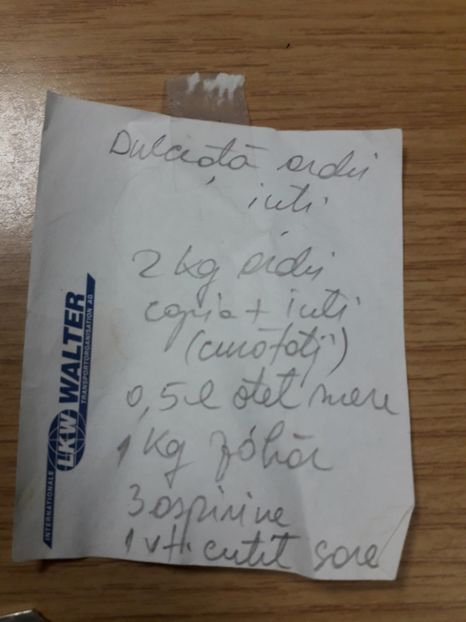 Dulceață ardei
iuti
2 kg ardei
capia + iuti
(curățați)
0,5 l oțet mere
1 kg zahăr
3 aspirine
1 vf. cutit sare
INTERNATIONALE
LKW WALTER
TRANSPORTORGANISATION AG